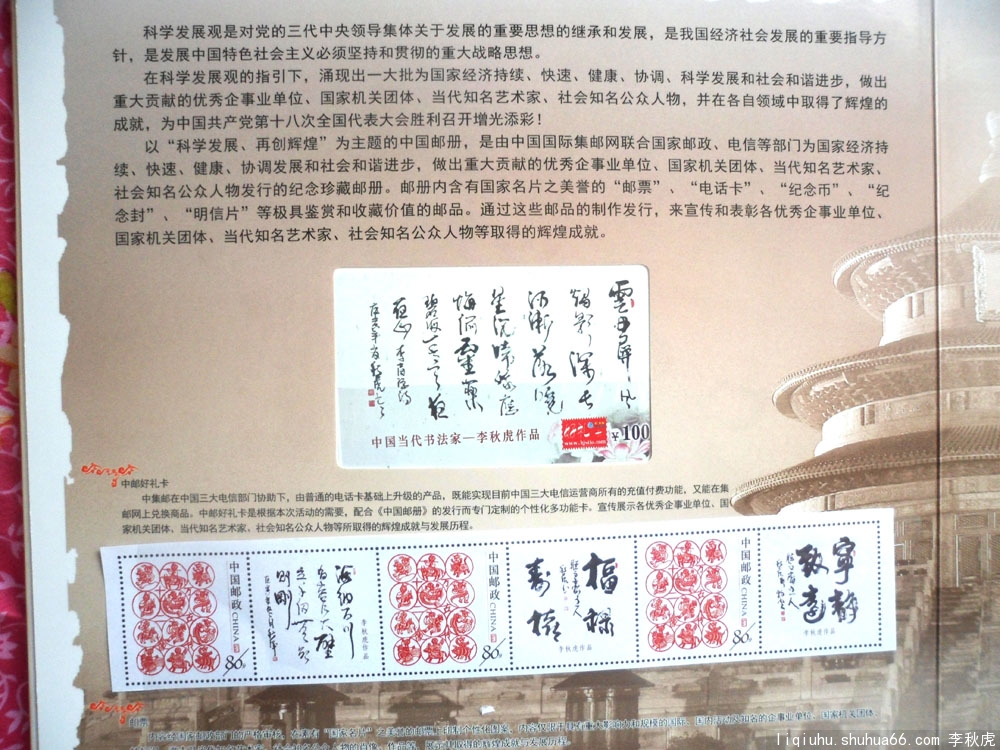 科学发展观是对党的三代中央领导集体关于发展的重要思想的继承和发展，是我国经济社会发展的重要指导方
针，是发展中国特色社会主义必须坚持和贯彻的重大战略思想。
在科学发展观的指引下，涌现出一大批为国家经济持续、快速、健康、协调、科学发展和社会和谐进步，做出
重大贡献的优秀企事业单位、国家机关团体、当代知名艺术家、社会知名公众人物，并在各自领域中取得了辉煌的
成就，为中国共产党第十八次全国代表大会胜利召开增光添彩！
以“科学发展、再创辉煌”为主题的中国邮册，是由中国国际集邮网联合国家邮政、电信等部门为国家经济持
续、快速、健康、协调发展和社会和谐进步，做出重大贡献的优秀企事业单位、国家机关团体、当代知名艺术家、
社会知名公众人物发行的纪念珍藏邮册。邮册内含有国家名片之美誉的“邮票”、“电话卡”、“纪念币”、“纪
念封”、“明信片”等极具鉴赏和收藏价值的邮品。通过这些邮品的制作发行，来宣传和表彰各优秀企事业单位、
国家机关团体、当代知名艺术家、社会知名公众人物等取得的辉煌成就。
雲母屏風
燭影深長
河漸落曉
星沉嫦娥應
悔偷靈藥
碧海青天夜夜
心 李商隱詩
中国当代书法家—李秋虎作品
¥100
中邮好礼卡
中集邮在中国三大电信部门协助下，由普通的电话卡基础上升级的产品，既能实现目前中国三大电信运营商所有的充值付费功能，又能在集
邮网上兑换商品。中邮好礼卡是根据本次活动的需要，配合《中国邮册》的发行而专门定制的个性化多功能卡。宣传展示各优秀企事业单位、国
家机关团体、当代知名艺术家、社会知名公众人物等所取得的辉煌成就与发展历程。
中国邮政 CHINA
80分
海纳百川
有容乃大壁
立千仞無欲
则刚
李秋虎作品
中国邮政 CHINA
80分
福禄
寿禧
李秋虎作品
中国邮政 CHINA
80分
宁静
致远
李秋虎作品
邮票
liqiuhu.shuhua66.com 李秋虎